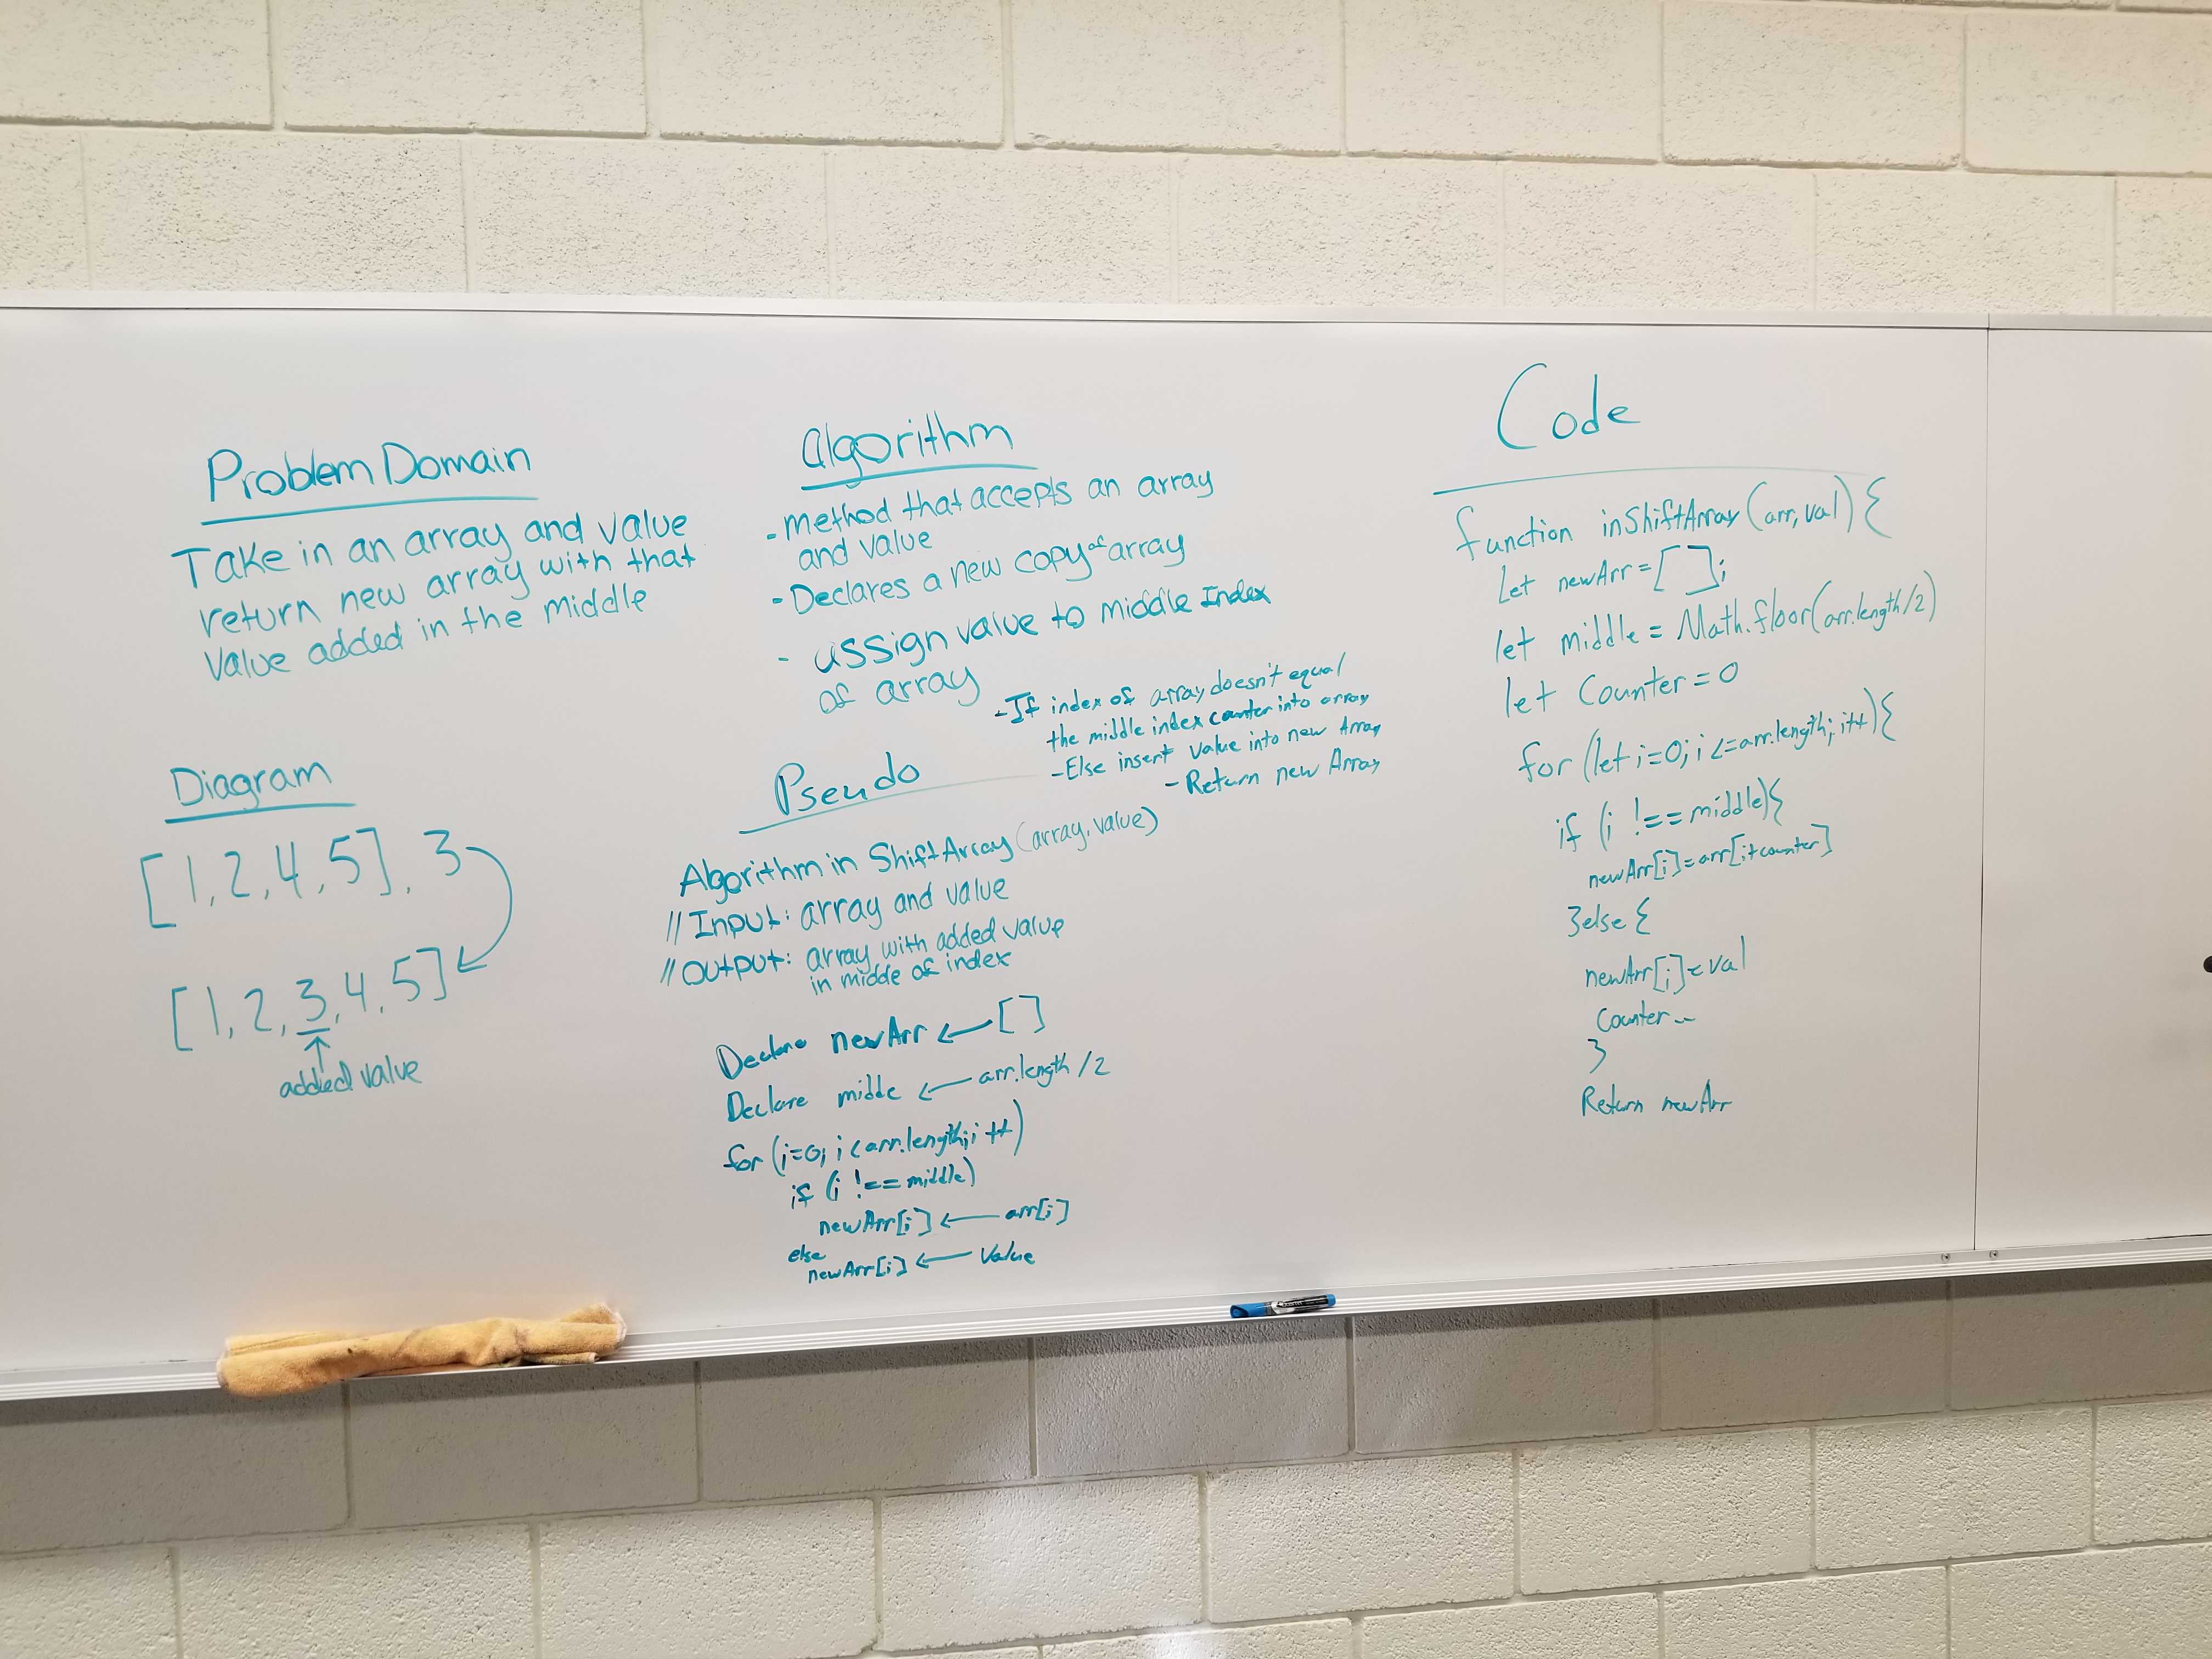 Problem Domain
Take in an array and value
return new array with that
value added in the middle
Diagram
[1,2,4,5], 3
[1,2,3,4,5]
added value
Algorithm
- method that accepts an array
and value
- Declares a new copy of array
- assign value to middle Index
of array
- If index of array doesn't equal
the middle index counter into array
- Else insert value into new Array
- Return new Array
Pseudo
Algorithm in ShiftArray (array, value)
// Input: array and value
// Output: array with added value
in midde of index
Declare newArr ← []
Declare midde ← arr.length /2
for (i=0; i < arr.length; i++)
if (i !== middle)
newArr[i] ← arr[i]
else
newArr[i] ← Value
Code
function inShiftArray (arr, val) {
Let newArr = [];
let middle = Math.floor(arr.length/2)
let Counter = 0
for (let i=0; i <= arr.length; i++) {
if (i !== middle) {
newArr[i] = arr[i+counter]
}else {
newArr[i] = val
Counter --
}
Return newArr